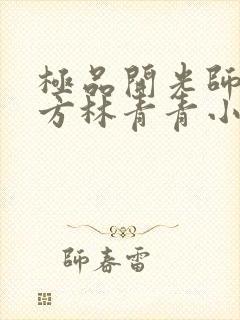 極品開光師
方林青青小
師春雷